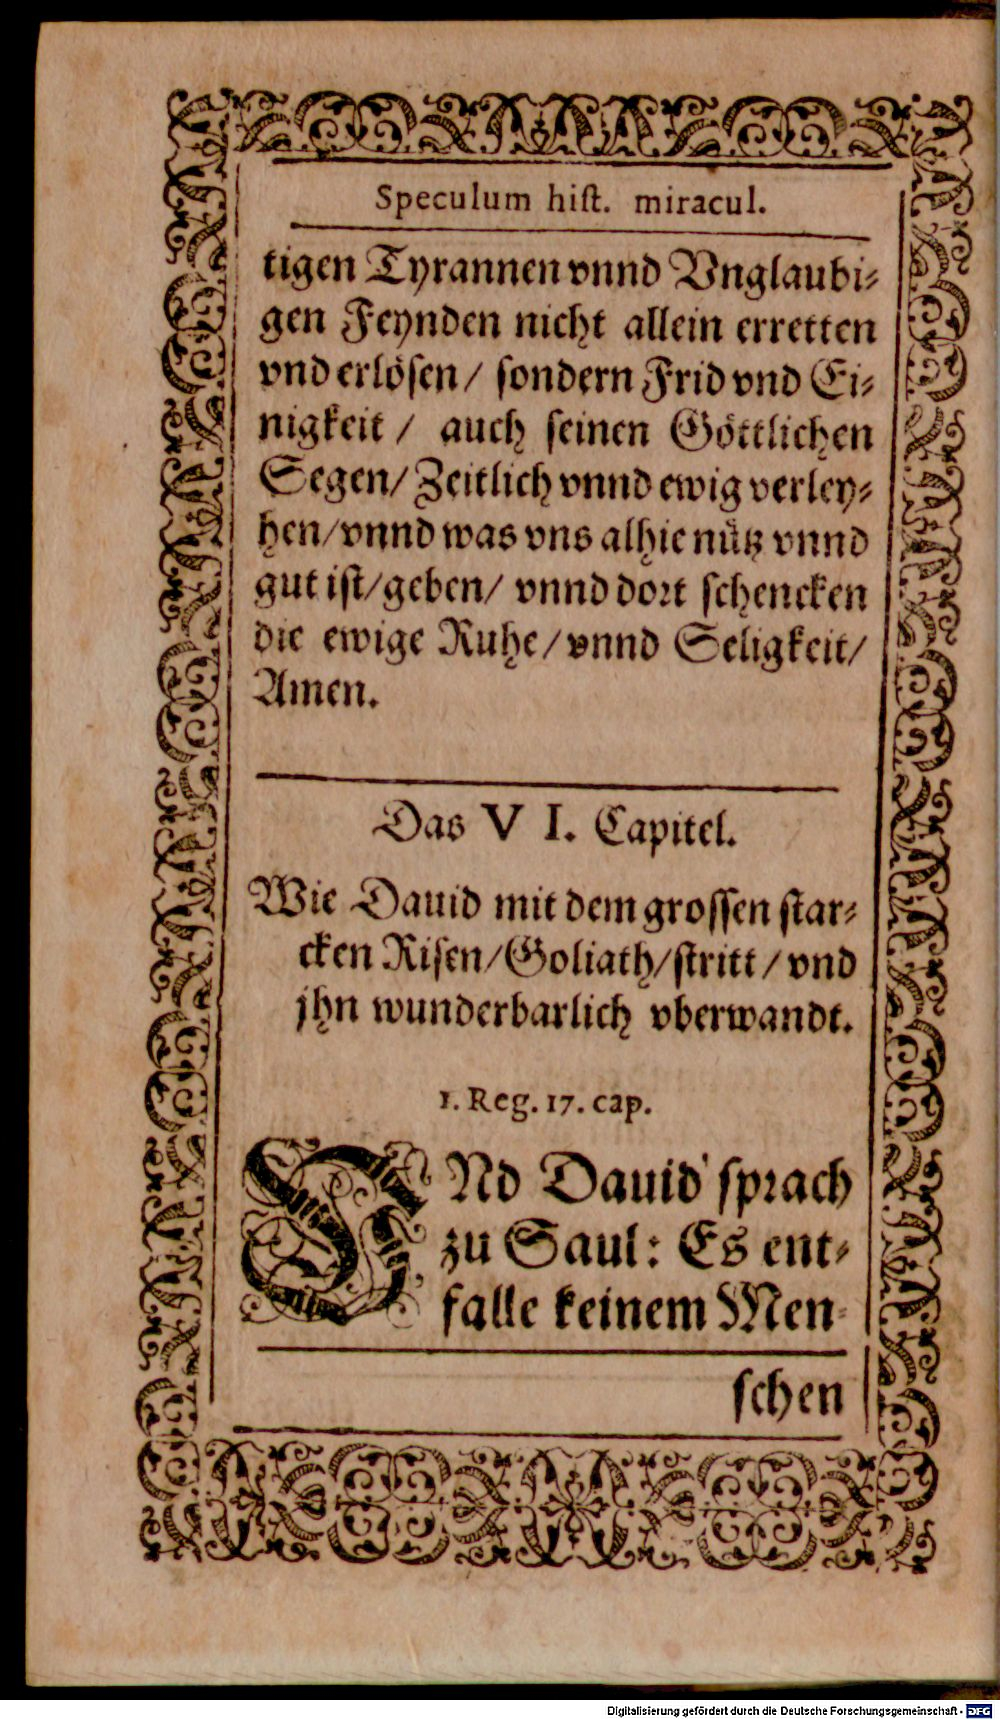 Speculum hist. miracul.
tigen Tyrannen vnnd Vnglaubi-
gen Feynden nicht allein erretten
vnd erlösen / sondern Frid vnd Ei-
nigkeit / auch seinen Göttlichen
Segen / Zeitlich vnnd ewig verley-
hen / vnnd was vns alhie nütz vnnd
gut ist / geben / vnnd dort schencken
die ewige Ruhe / vnnd Seligkeit /
Amen.
Das VI. Capitel.
Wie Dauid mit dem grossen star-
cken Risen / Goliath / stritt / vnd
jhn wunderbarlich vberwandt.
1. Reg. 17. cap.
VNd Dauid sprach
zu Saul: Es ent-
falle keinem Men-
schen
Digitalisierung gefördert durch die Deutsche Forschungsgemeinschaft - DFG